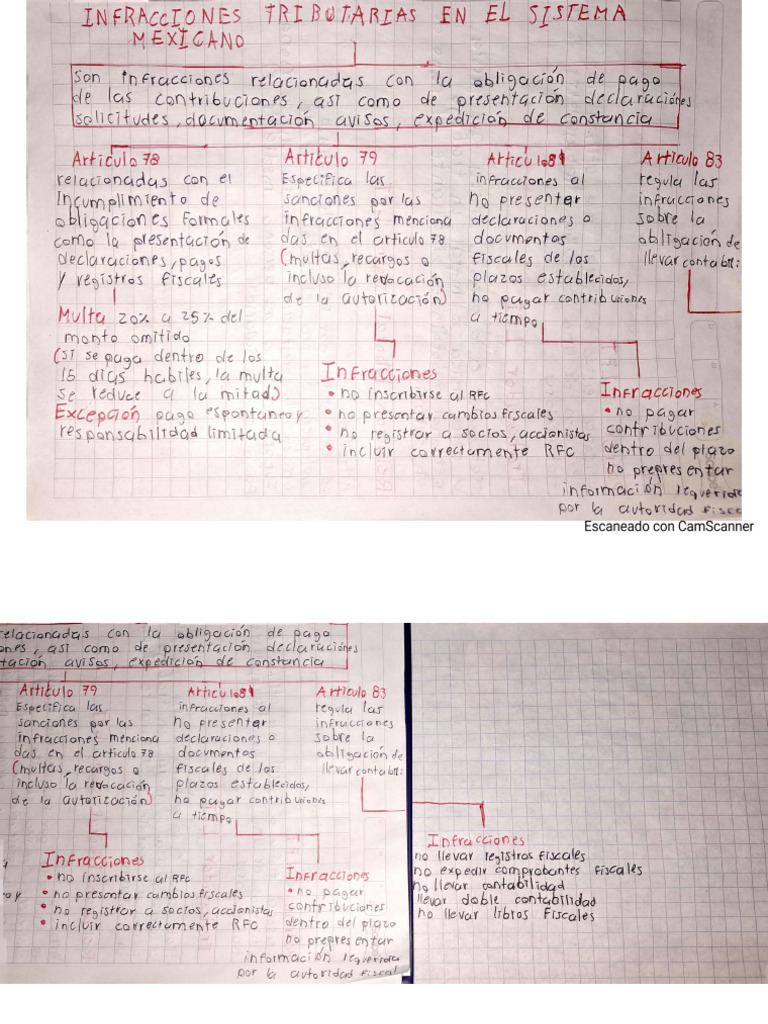 INFRACCIONES TRIBUTARIAS EN EL SISTEMA
MEXICANO
Son infracciones relacionadas con la obligación de pago
de las contribuciones, así como de presentación declaraciónes
solicitudes, documentación avisos, expedición de constancia
Articulo 78
relacionadas con el
Incumplimiento de
obligaciones Formales
como la presentación de
declaraciones, pagos
y registros fiscales
Multa 20% a 25% del
monto omitido
(si se paga dentro de los
15 días habiles, la multa
se reduce a la mitad)
Excepción pago espontaneo y
responsabilidad limitada
Articulo 79
Especifica las
sanciones por las
infracciones menciona
das en el articulo 78
(multas, recargos o
incluso la revocación
de la autorización)
Infracciones
• no inscribirse al RFC
• no presentar cambios fiscales
• no registrar a socios, accionistas
• incluir correctamente RFC
Articulo 81
infracciones al
no presentar
declaraciones o
documentos
fiscales de los
plazos establecidos,
no pagar contribuciones
a tiempo
Infracciones
• no pagar
contribuciones
dentro del plazo
no prepresentar
información requerida
por la autoridad fiscal
Articulo 83
regula las
infracciones
sobre la
obligación de
llevar contabili:
Escaneado con CamScanner
relacionadas con la obligación de pago
ones, así como de presentación declaraciónes
tación avisos, expedición de constancia
Articulo 79
Especifica las
sanciones por las
infracciones menciona
das en el articulo 78
(multas, recargos o
incluso la revocación
de la autorización)
Infracciones
• no inscribirse al RFC
o y • no presentar cambios fiscales
• no registrar a socios, accionistas
• incluir correctamente RFC
Articulo 81
infracciones al
no presentar
declaraciones o
documentos
fiscales de los
plazos establecidos,
no pagar contribuciones
a tiempo
Infracciones
• no pagar
contribuciones
dentro del plazo
no prepresentar
información requerida
por la autoridad fiscal
Articulo 83
regula las
infracciones
sobre la
obligación de
llevar contabili:
Infracciones
no llevar registros fiscales
no expedir comprobantes fiscales
no llevar contabilidad
llevar doble contabilidad
no llevar libros Fiscales